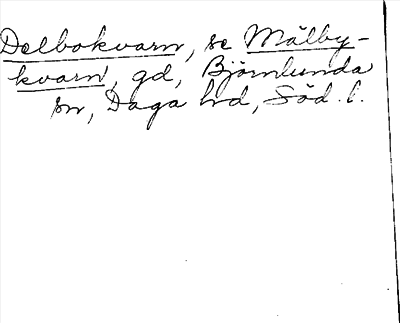 Delbokvarn, se Mälby-
kvarn, gd, Björnlunda
sn, Daga hd, Söd. l.